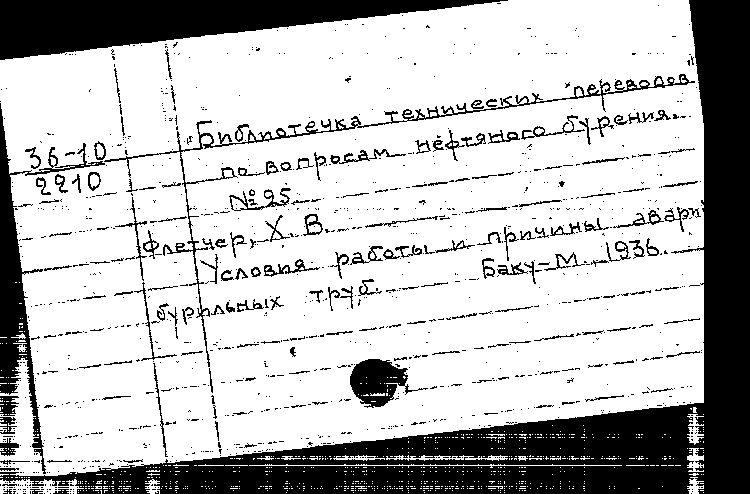 36-10
2210
"Библиотечка технических переводов"
по вопросам нефтяного бурения.
№ 25.
Флетчер, Х. В.
Условия работы и причины аварий
бурильных труб. Баку-М. 1936.